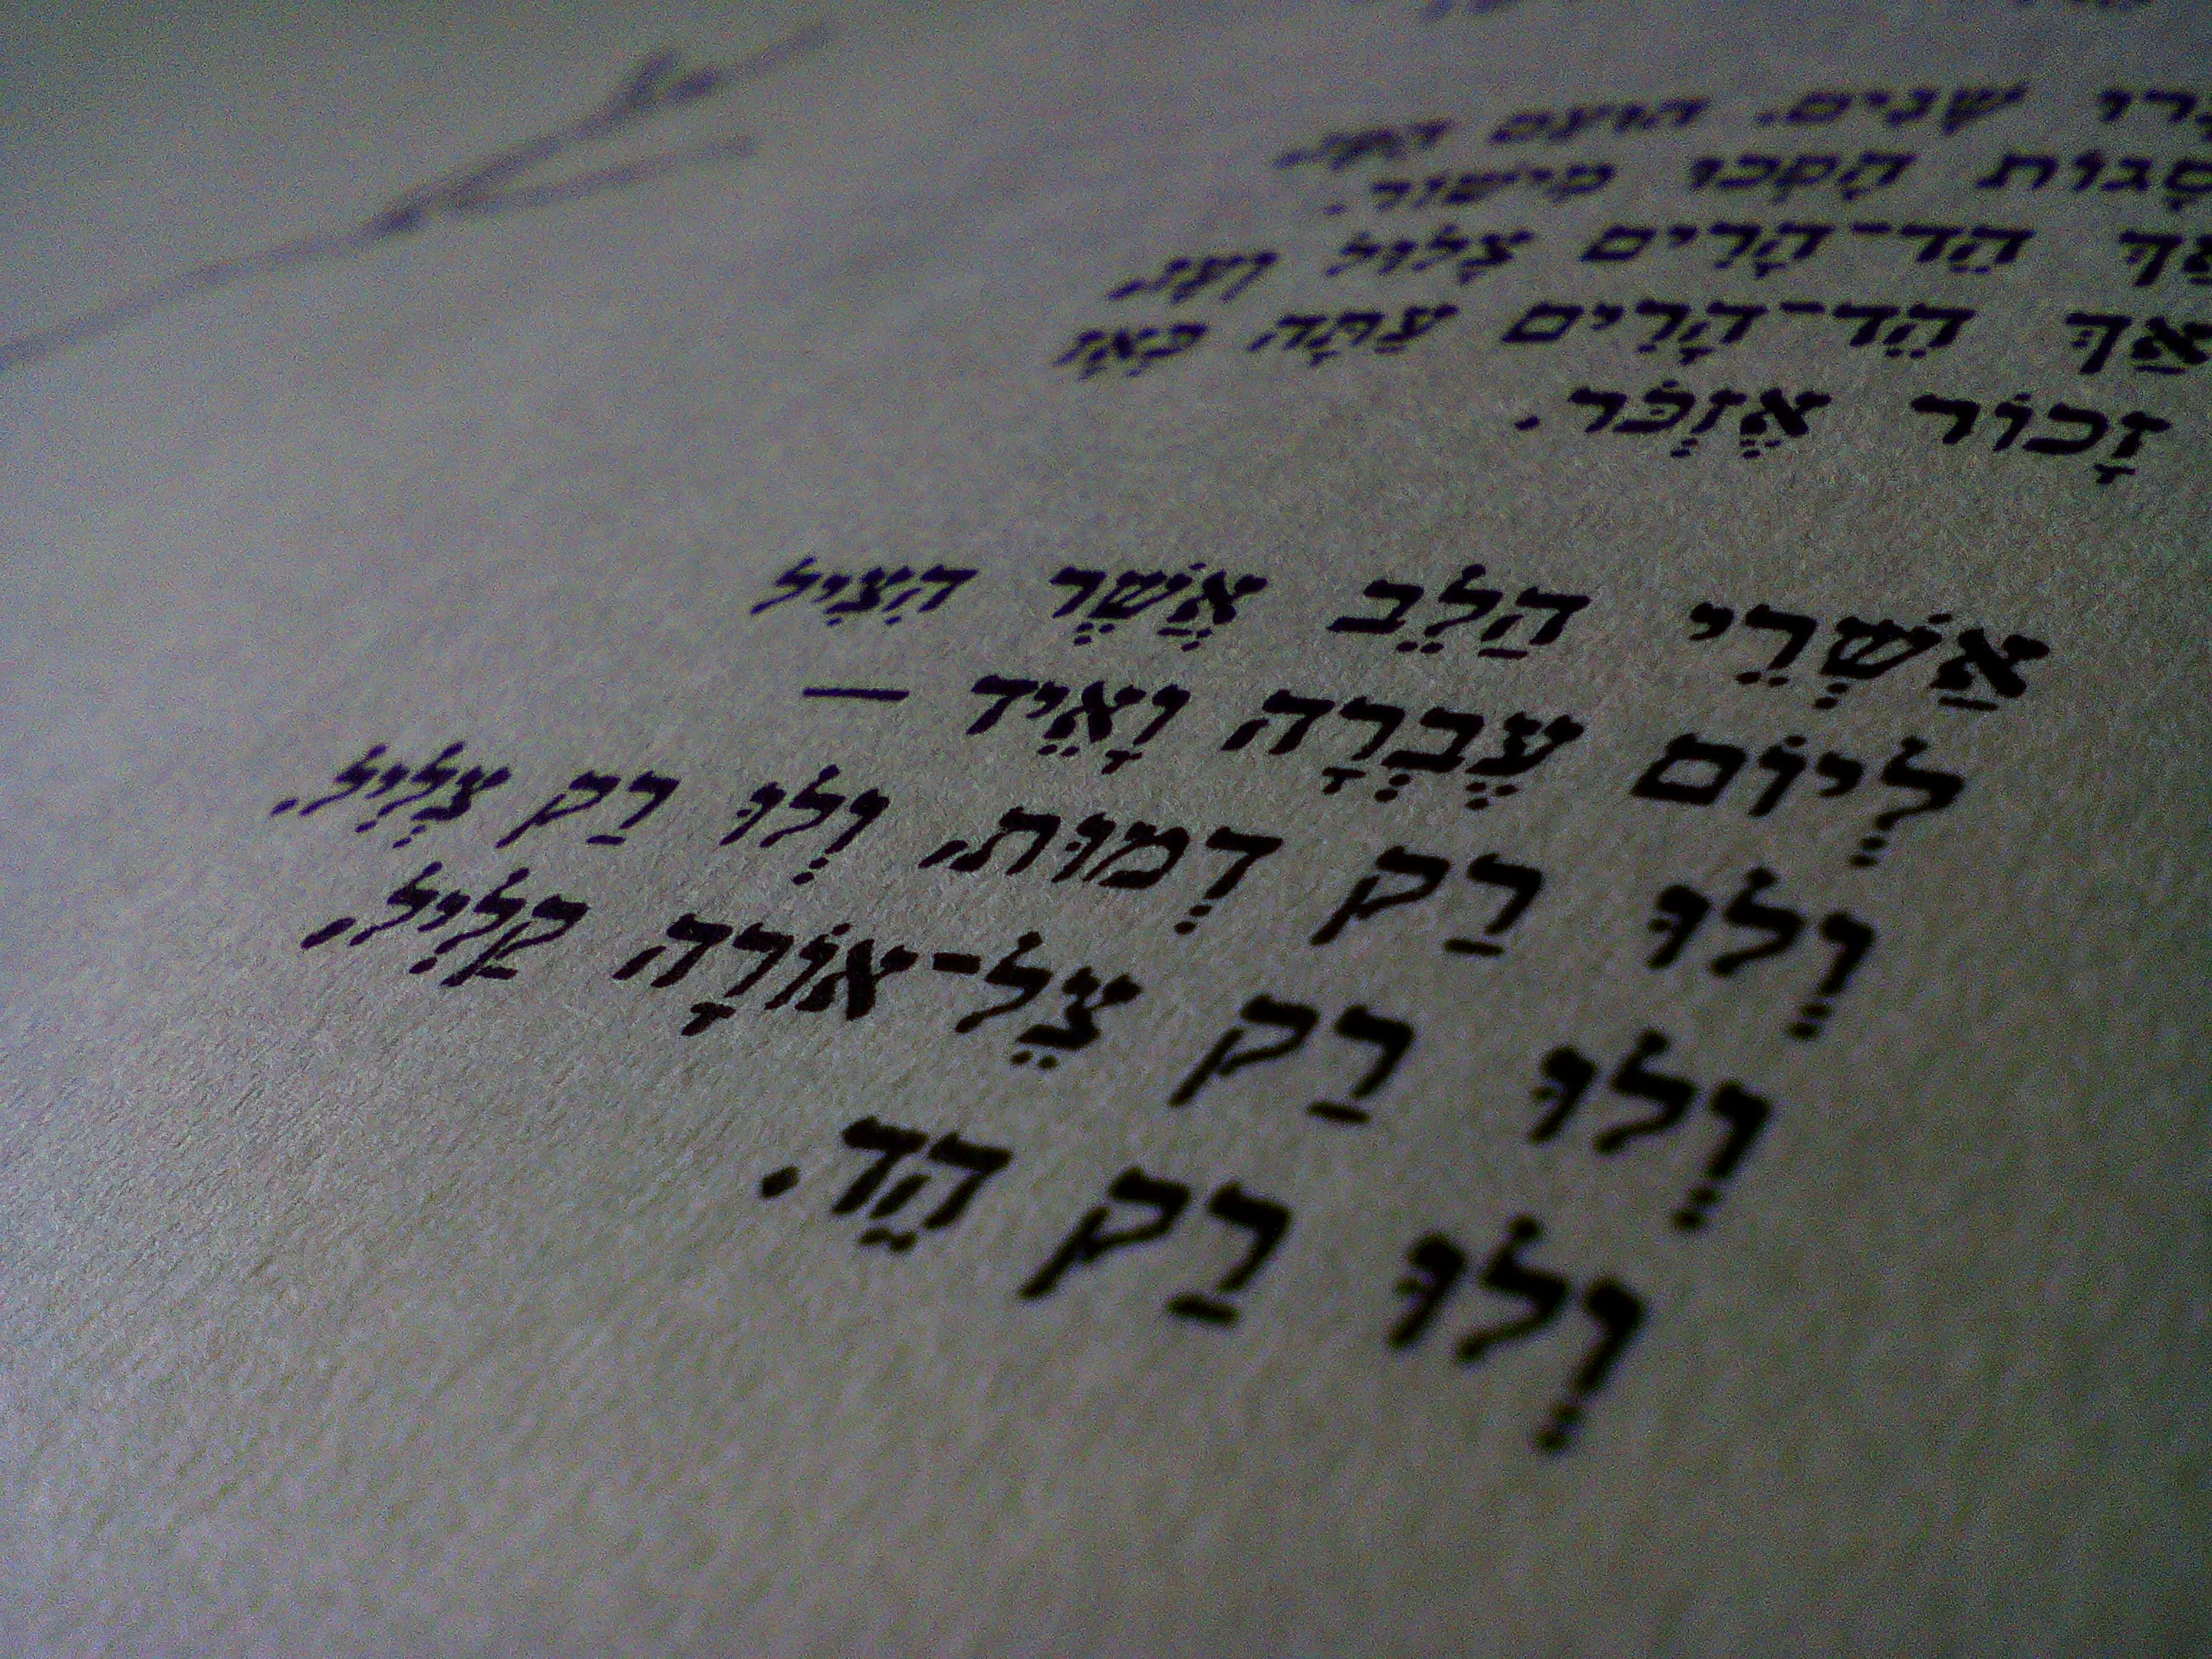 שָׁנִים. הוּעַם הַפָּז.
הָפְכוּ מִישׁוֹר.
אַךְ הֵד־הָרִים צָלוּל וָעָז.
אַךְ הֵד־הָרִים עַתָּה כְּאָז
זָכוֹר אֶזְכֹּר.
אַשְׁרֵי הַלֵּב אֲשֶׁר הִצִּיל
לְיוֹם עֶבְרָה וָאֵיד —
וְלוּ רַק דְּמוּת, וְלוּ רַק צְלִיל,
וְלוּ רַק צֵל־אוֹרָה קַלִּיל,
וְלוּ רַק הֵד.